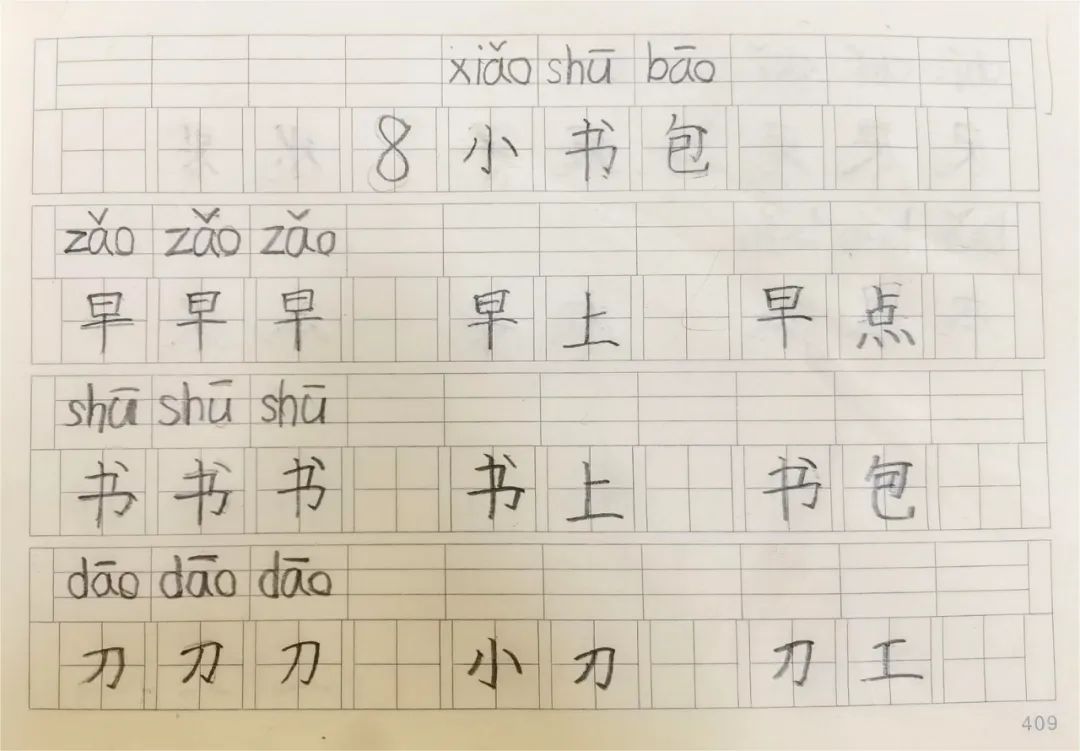 xiǎo shū bāo
8 小 书 包
zǎo zǎo zǎo
早 早 早 早 上 早 点
shū shū shū
书 书 书 书 上 书 包
dāo dāo dāo
刀 刀 刀 小 刀 刀 工
409